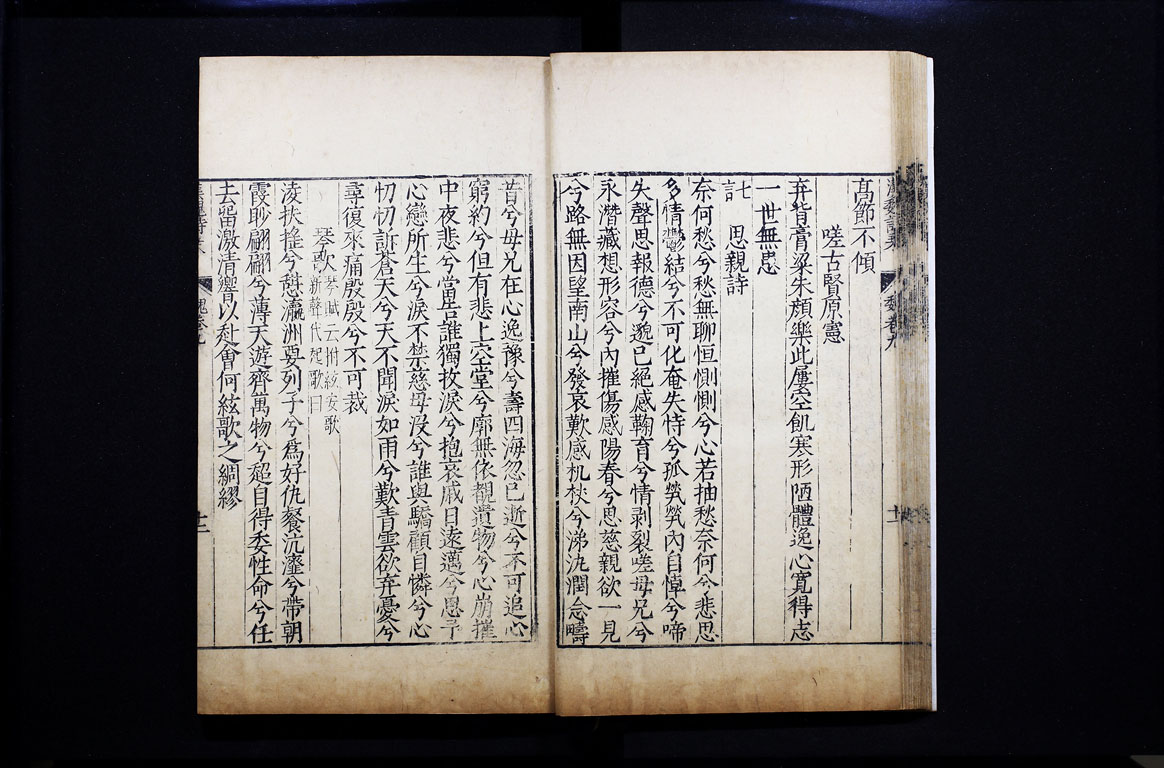 漢魏詩集 魏卷九 十一
高節不傾
嗟古賢原憲
弃背膏粱朱顏樂此屢空飢寒形陋體逸心寬得志
一世無患
訖 思親詩
奈何愁兮愁無聊恒惻惻兮心若抽愁奈何兮悲思
多情鬱結兮不可化奄失恃兮孤煢煢內自悼兮啼
失聲思報德兮邈已絕感鞠育兮情剥裂嗟母兄兮
永潛藏想形容兮內摧傷感陽春兮思慈親欲一見
兮路無因望南山兮發哀歎感机杖兮涕汍瀾念疇
昔兮母兄在心逸豫兮壽四海忽已逝兮不可追心
窮約兮但有悲上空堂兮廓無依覩遺物兮心崩摧
中夜悲兮當告誰獨抆淚兮抱哀戚日遠邁兮思予
心戀所生兮淚不禁慈母沒兮誰與驕顧自憐兮心
忉忉訴蒼天兮天不聞淚如雨兮歎青雲欲弃憂兮
尋復來痛殷殷兮不可裁
琴歌 琴賦云拊絃安歌
新聲代起歌曰
淩扶搖兮憩瀛洲要列子兮爲好仇餐沆瀣兮帶朝
霞眇翩翩兮薄天遊齊萬物兮超自得委性命兮任
去留激清響以赴會何絃歌之綢繆
魏卷九 十二